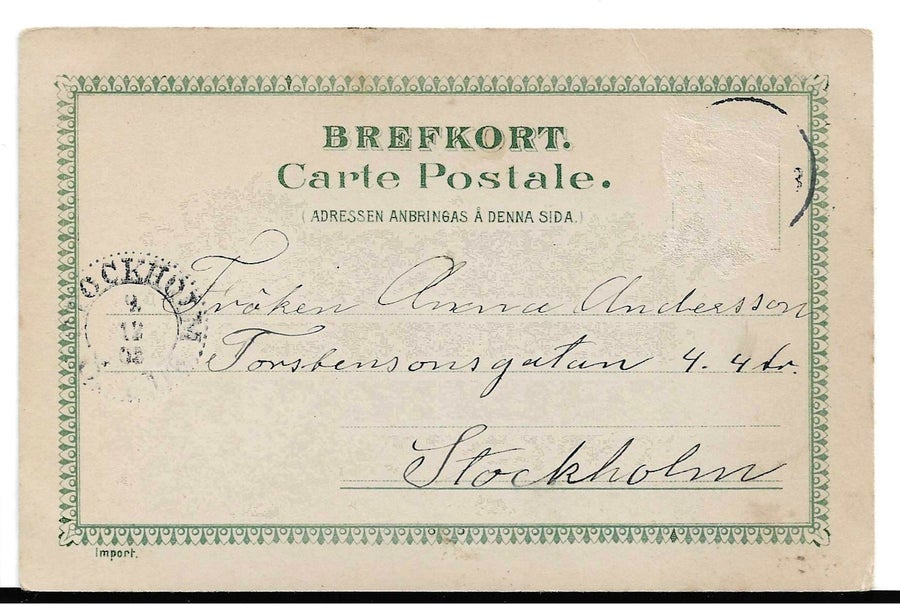 BREFKORT.
Carte Postale.
(ADRESSEN ANBRINGAS Å DENNA SIDA.)
Fröken Anna Andersson
Torstensonsgatan 4. 4 tr.
Stockholm
STOCKHOLM
9
12
Import.